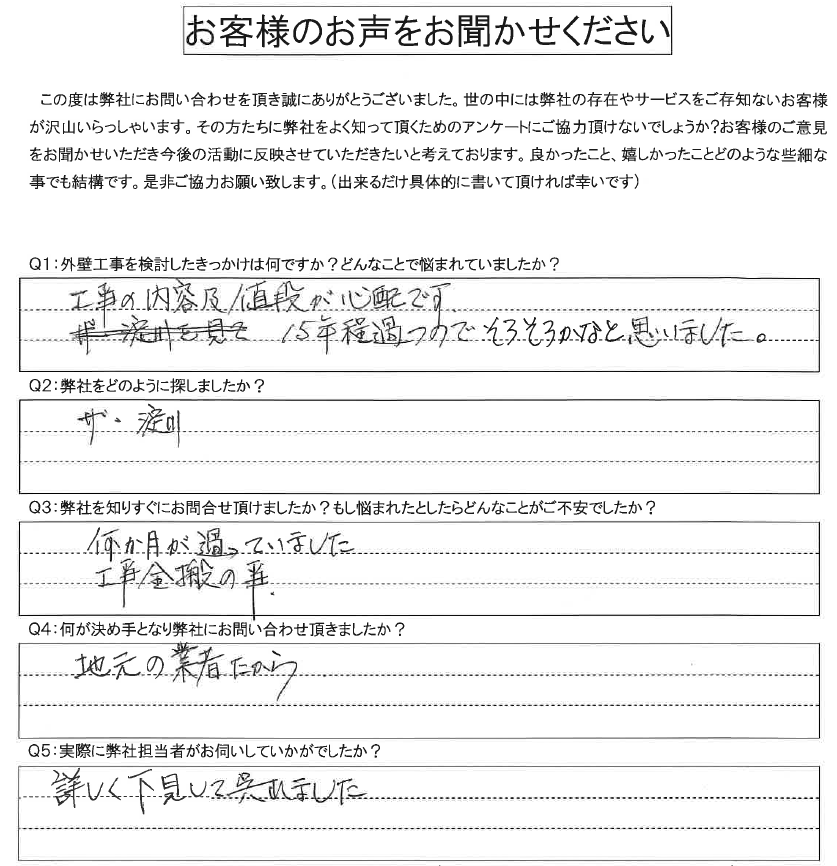 お客様のお声をお聞かせください
この度は弊社にお問い合わせを頂き誠にありがとうございました。世の中には弊社の存在やサービスをご存知ないお客様
が沢山いらっしゃいます。その方たちに弊社をよく知って頂くためのアンケートにご協力頂けないでしょうか?お客様のご意見
をお聞かせいただき今後の活動に反映させていただきたいと考えております。良かったこと、嬉しかったことどのような些細な
事でも結構です。是非ご協力お願い致します。(出来るだけ具体的に書いて頂ければ幸いです)
Q1:外壁工事を検討したきっかけは何ですか?どんなことで悩まれていましたか?
工事の内容及値段が心配です.
ザ・淀川を見て 15年程過つのでそろそろかなと思いました。
Q2:弊社をどのように探しましたか?
ザ・淀川
Q3:弊社を知りすぐにお問合せ頂けましたか?もし悩まれたとしたらどんなことがご不安でしたか?
何か月が過っていました
工事全搬の事.
Q4:何が決め手となり弊社にお問い合わせ頂きましたか?
地元の業者だから
Q5:実際に弊社担当者がお伺いしていかがでしたか?
詳しく下見して呉れました